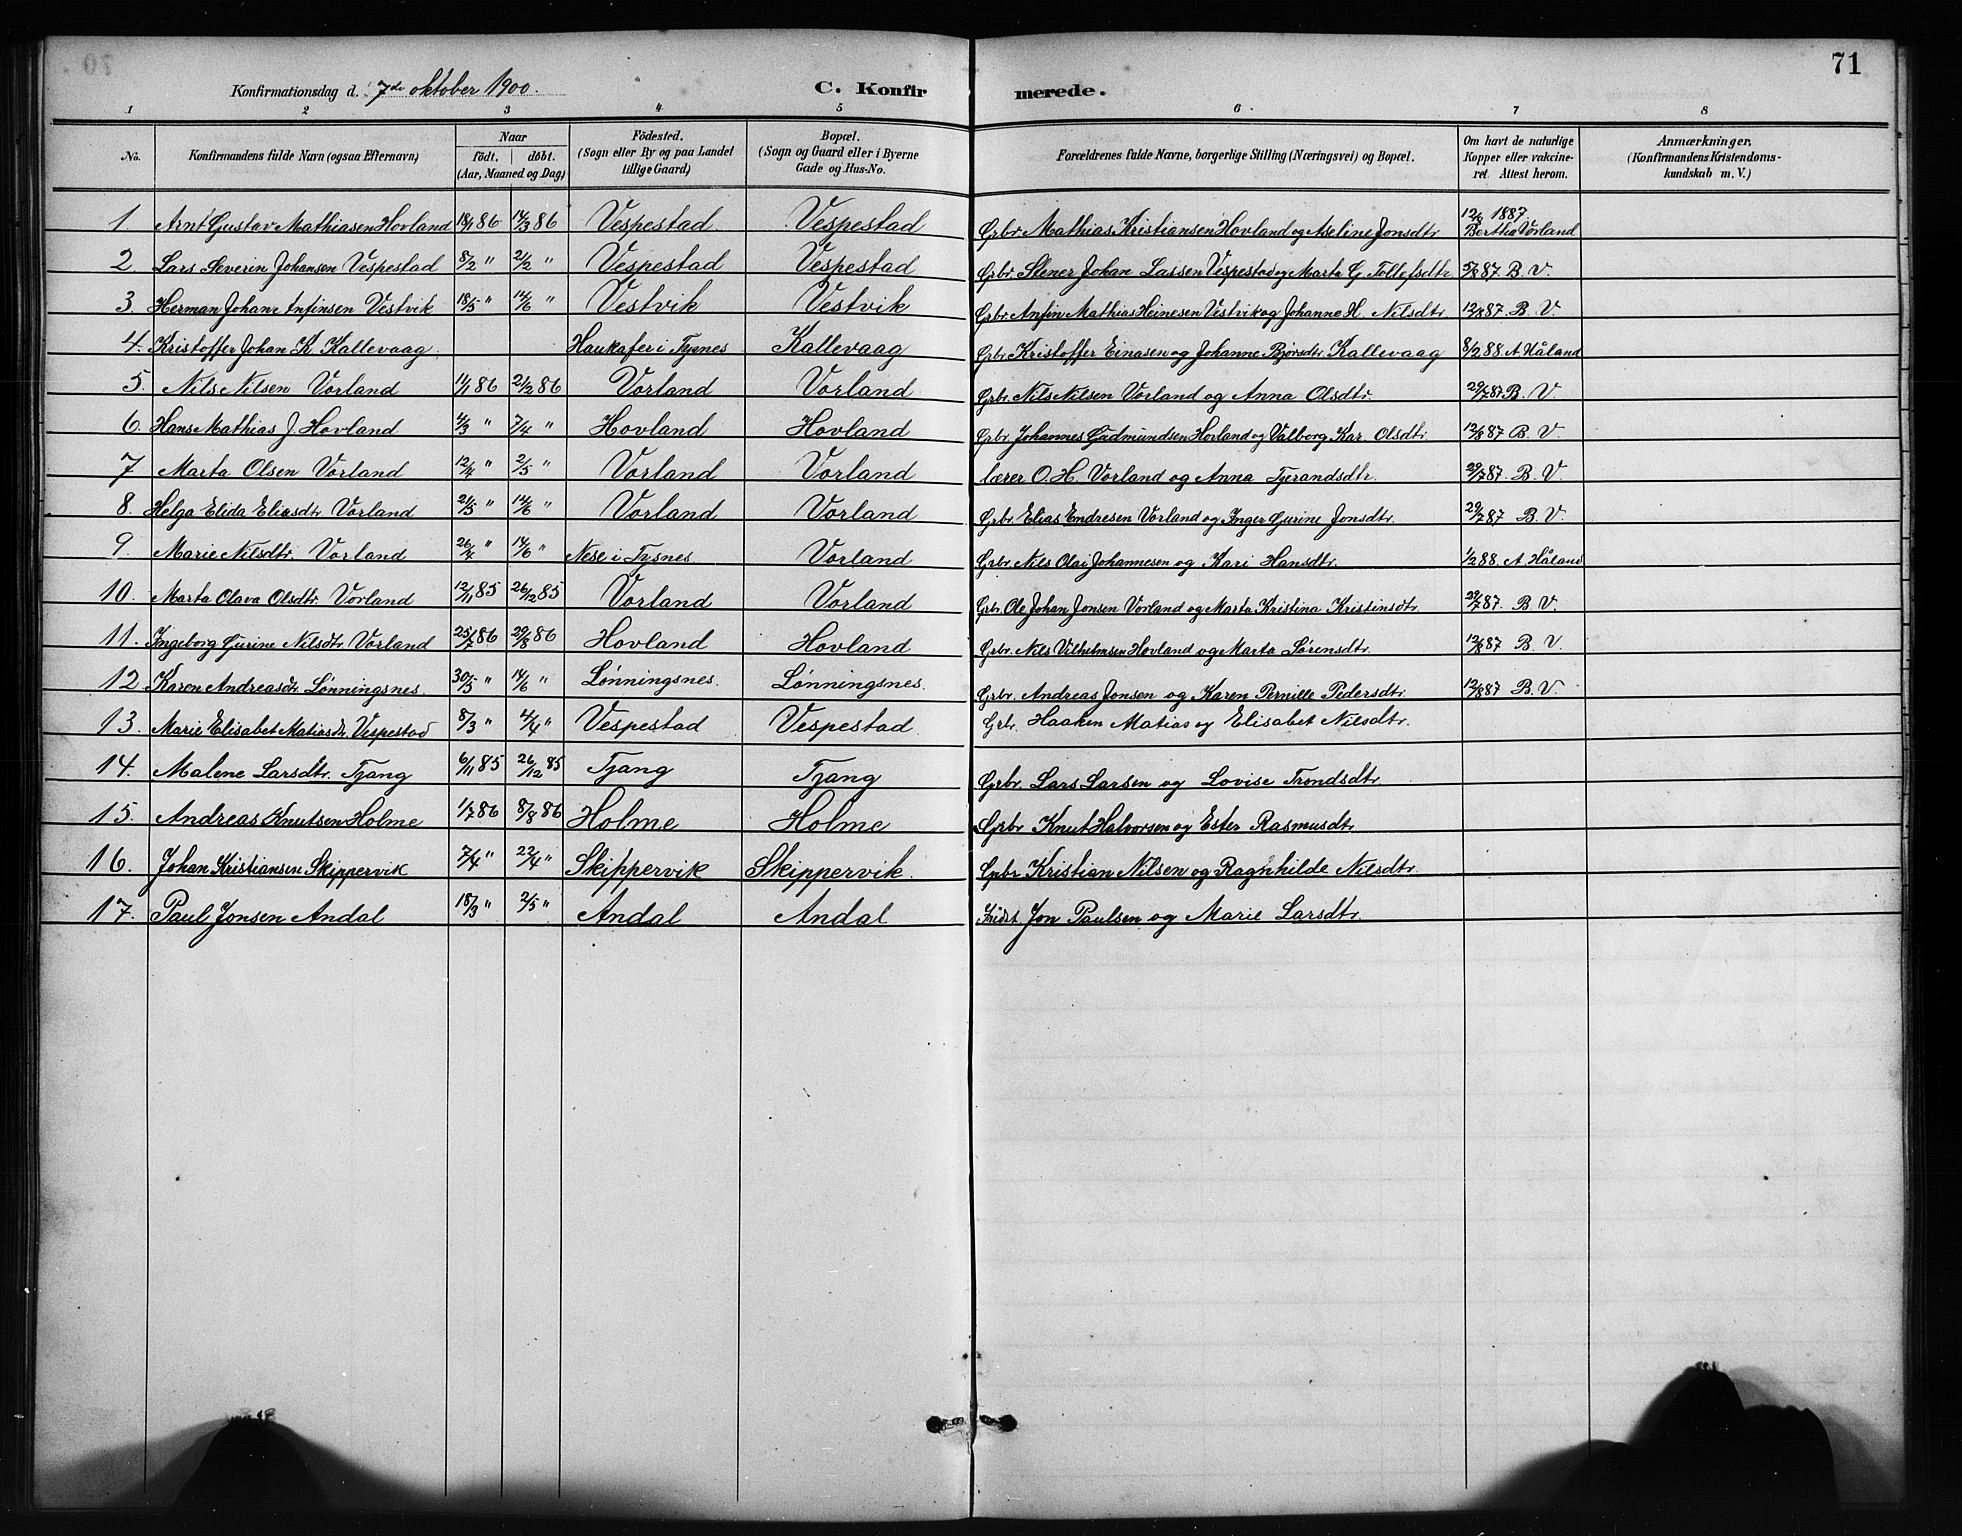 71
Konfirmationsdag d. 7de oktober 1900. C. Konfirmerede.
1 2 3 4 5 6. 7 8
No. Konfirmandens fulde Navn (ogsaa Efternavn) Naar födt. döbt. (Aar, Maaned og Dag) Födested. (Sogn eller By og paa Landet tillige Gaard) Bopæl. (Sogn og Gaard eller i Byerne Gade og Hus-No. Forældrenes fulde Navne, borgerlige Stilling (Næringsvei) og Bopæl. Om havt de naturlige Kopper eller vakcineret. Attest herom. Anmærkninger, (Konfirmandens Kristendomskundskab m. V.)
1. Arnt Gustav Mathiasen Hovland 18/1 86 14/3 86 Vespestad Vespestad Grbr. Mathias Kristiansen Hovland og Aseline Jonsdtr 12/8 1887. Bertha Vorland
2 Lars Severin Johansen Vespestad 8/2 " 2/2 " Vespestad Vespestad Grbr. Stener Johan Lassen Vespestad og Marta G. Tollefsdtr 5/8 87. B. V.
3. Herman Johan Anfinsen Vestvik 18/5 " 14/6 " Vestvik Vestvik Grbr. Anfin Mathias Heinesen Vestvik og Johanne H. Nilsdtr 12/8 87. B. V
4. Kristoffer Johan K. Kallevaag Haukafer i Tysnes Kallevaag Grbr. Kristoffer Einasen og Johanne Bjørsdtr. Kallevaag 8/2 88. A Håland
5. Nils Nilsen Vorland 11/1 86 21/2 86 Vorland Vorland Grbr. Nils Nilsen Vorland og Anna Olsdtr. 29/7 87 B. V.
6. Hans Mathias J. Hovland 4/3 " 7/4 " Hovland Hovland Grbr. Johannes Gudmundsen Hovland og Valborg Kar. Olsdtr. 12/8 87 B. V.
7 Marta Olsen Vorland 12/4 " 2/5 " Vorland Vorland lærer O. H. Vorland og Anna Tjerandsdtr. 29/7 87. B. V.
8. Helga Elida Eliasdtr Vorland 21/5 " 14/6 " Vorland Vorland Grbr. Elias Endresen Vorland og Inger Gurine Jonsdtr. 29/7 87 B. V.
9. Marie Nilsdtr. Vorland 26/4 " 14/6 " Nese i Tysnes Vorland Grbr. Nils Olai Johannesen og Kari Hansdtr. 1/2 88. A Håland
10. Marta Olava Olsdtr. Vorland 12/11 85 26/12 85 Vorland Vorland Grbr. Ole Johan Jonsen Vorland og Marta Kristina Kristinsdtr 29/7 87. B. V.
11. Ingeborg Gurine Nilsdtr. Vorland 25/7 86 29/8 86 Hovland Hovland Grbr. Nils Vilhelmsen Hovland og Marta Sørensdtr. 12/8 87 B. V.
12. Karen Andreasdtr. Lønningsnes. 30/3 " 14/6 " Lønningsnes. Lønningsnes. Grbr. Andreas Jonsen og Karen Pernille Pedersdtr. 12/8 87 B. V.
13. Marie Elisabet Matiasdtr. Vespestad 8/3 " 4/4 " Vespestad Vespestad. Grbr. Haaken Matias og Elisabet Nilsdtr.
14. Malene Larsdtr. Tjang 6/11 85 26/12 85 Tjang Tjang Grbr. Lars Larsen og Lovise Trondsdtr
15. Andreas Knutsen Holme 1/7 86 8/8 86 Holme Holme Grbr Knut Halvorsen og Ester Rasmusdtr
16. Johan Kristiansen Skippervik 7/4 " 22/4 " Skippervik Skippervik. Grbr Kristian Nilsen og Ragnhilde Nilsdtr.
17. Paul Jonsen Andal 18/3 " 2/5 " Andal Andal Jon Paulsen og Marie Larsdtr.